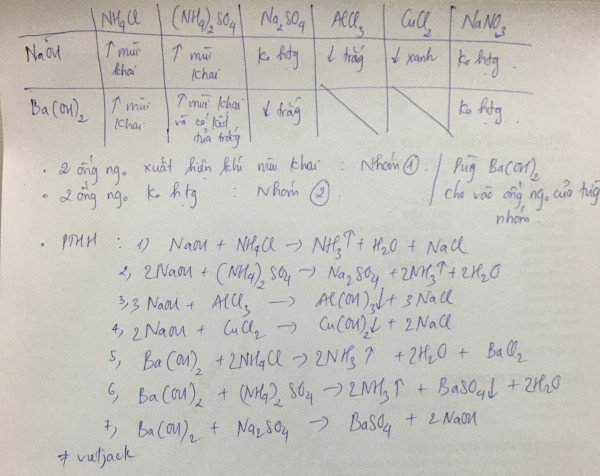 NH4Cl (NH4)2SO4 Na2SO4 AlCl3 CuCl2 NaNO3
NaOH ↑ mùi khai ↑ mùi khai ko htg ↓ trắng ↓ xanh ko htg
Ba(OH)2 ↑ mùi khai ↑ mùi khai và có kết tủa trắng ↓ trắng ko htg
• 2 ống ng. xuất hiện khí mùi khai : Nhóm ①
• 2 ống ng. ko htg : Nhóm ②
Dùng Ba(OH)2
cho vào ống ng. của từng
nhóm.
• PTHH : 1) NaOH + NH4Cl → NH3↑ + H2O + NaCl
2, 2NaOH + (NH4)2SO4 → Na2SO4 + 2NH3↑ + 2H2O
3, 3NaOH + AlCl3 → Al(OH)3↓ + 3NaCl
4, 2NaOH + CuCl2 → Cu(OH)2↓ + 2NaCl
5, Ba(OH)2 + 2NH4Cl → 2NH3↑ + 2H2O + BaCl2
6, Ba(OH)2 + (NH4)2SO4 → 2NH3↑ + BaSO4↓ + 2H2O
7, Ba(OH)2 + Na2SO4 → BaSO4 + 2NaOH